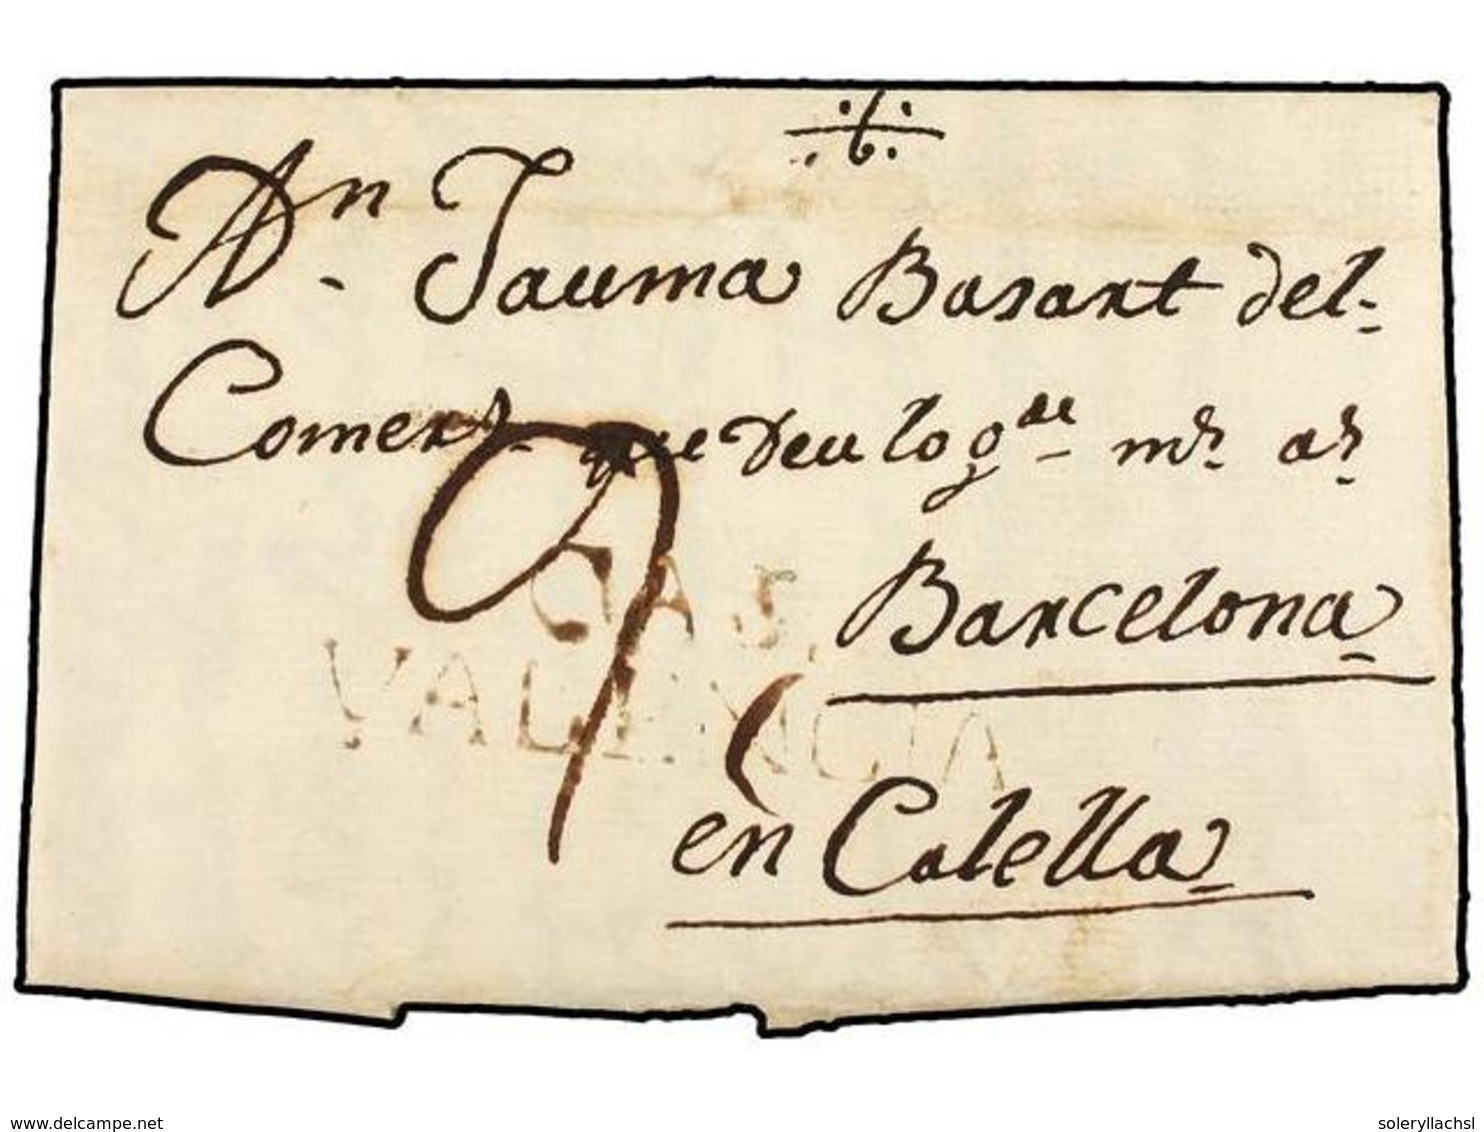 An. Jauma Basart del-
Comers que Deu lo gde ms as
Barcelona
en Calella
9
CAS,
VALENCIA
delcampe.net
soleryllachsl